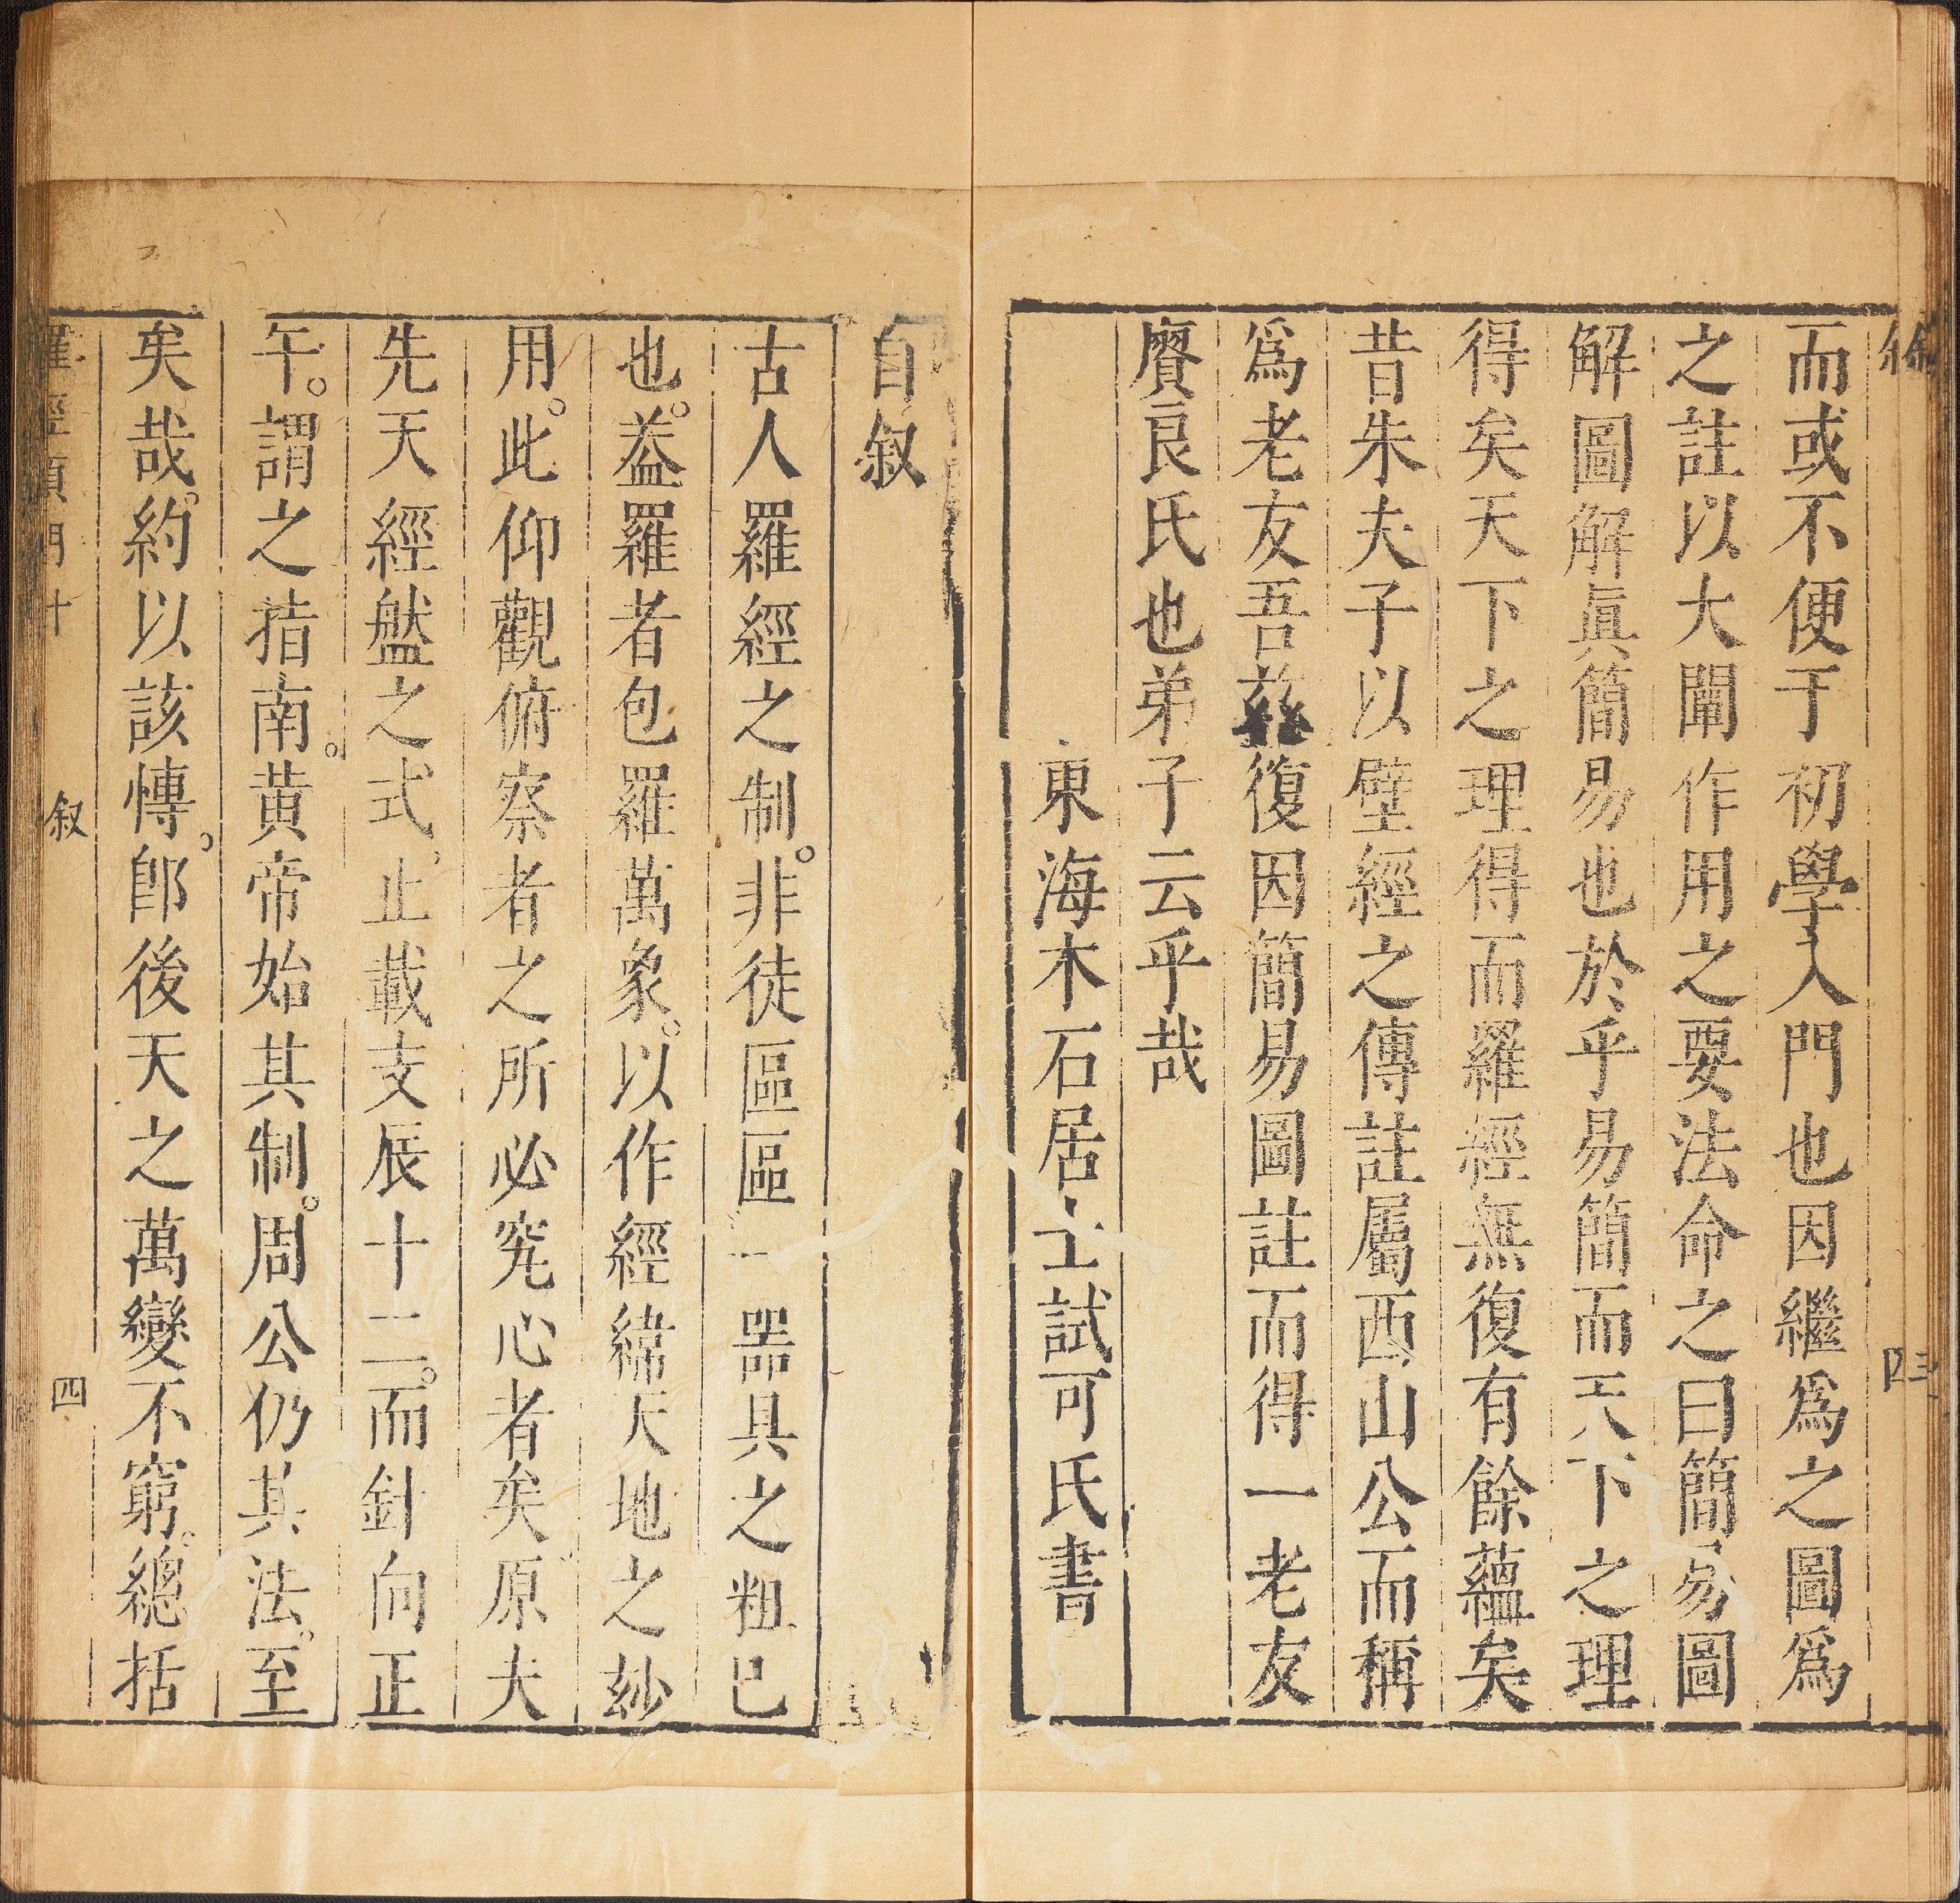 而或不便于初學入門也因繼爲之圖爲
之註以大闡作用之要法命之曰簡易圖
解圖解眞簡易也於乎易簡而天下之理
得矣天下之理得而羅經無復有餘蘊矣
昔朱夫子以壁經之傳註屬西山公而稱
爲老友吾茲復因簡易圖註而得一老友
賡良氏也弟子云乎哉
東海木石居士試可氏書
自叙
古人羅經之制。非徒區區一器具之粗已
也。葢羅者包羅萬象。以作經緯天地之玅
用。此仰觀俯察者之所必究心者矣原夫
先天經盤之式。止載支辰十二。而針向正
午。謂之指南。黄帝始其制。周公仍其法。至
矣哉。約以該愽。卽後天之萬變不窮。總括
羅經頂門十 叙 四